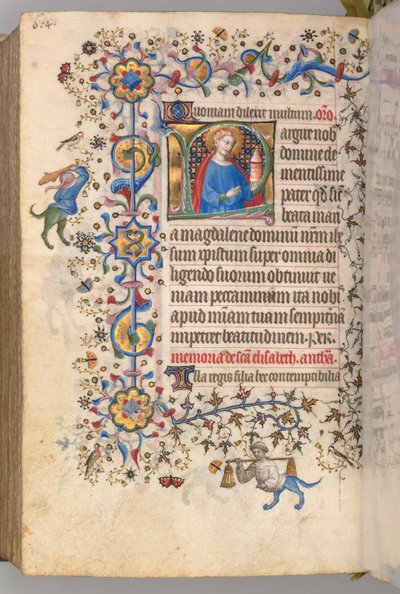 654.
Quoniam dilexit multum. oro
argire nob
domine cle
mentissime
pater qd sic
beata mari
a magdalene dominum nrm ihe
sum xpistum super omnia di
ligendo suorum obtinuit ve
niam peccaminum ita nobis
apud misericordiam tuam sempiterna
impetret beatitudinem. Per.
memoria de scā elisabeth. anthā.
Illa regis filia hec contemptibilia